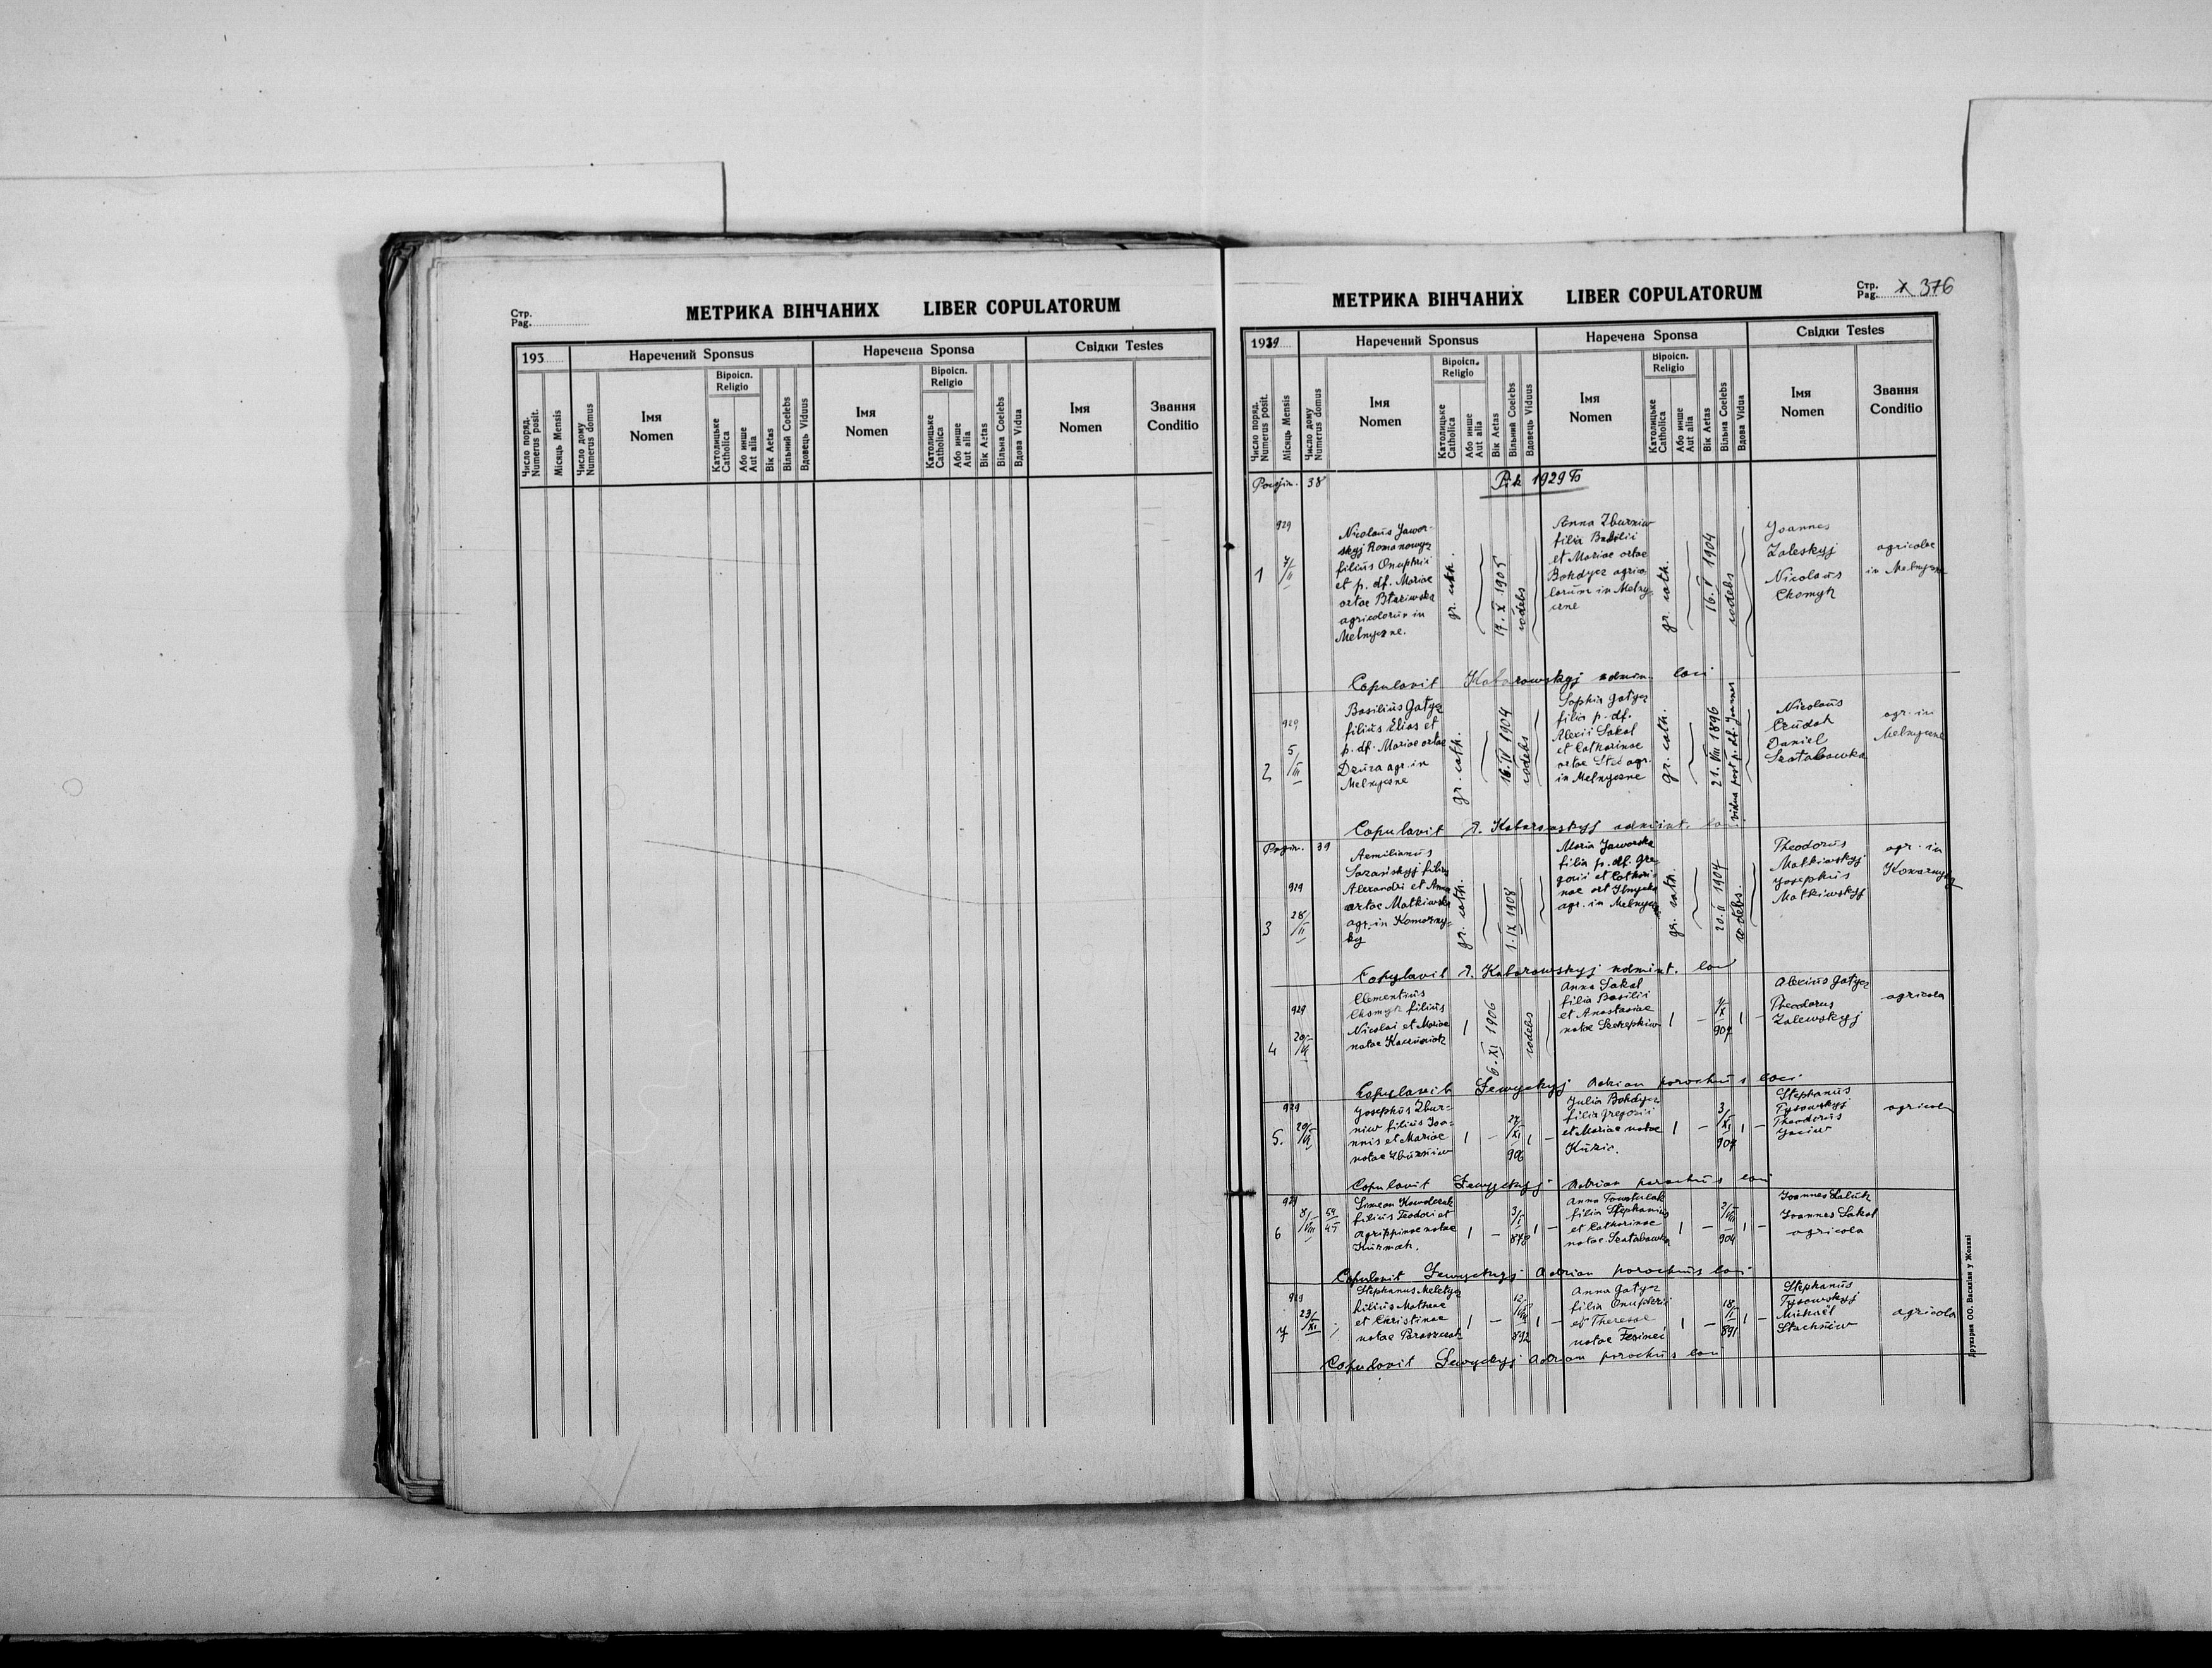 Стр.
Pag.
МЕТРИКА ВІНЧАНИХ LIBER COPULATORUM
193
Наречений Sponsus
Наречена Sponsa
Свідки Testes
Число поряд.
Numerus posit.
Місяць Mensis
Число дому
Numerus domus
Імя
Nomen
Віроісп.
Religio
Католицьке
Catholica
Або инше
Aut alia
Вік Aetas
Вільний Coelebs
Вдовець Viduus
Імя
Nomen
Віроісп.
Religio
Католицьке
Catholica
Або инше
Aut alia
Вік Aetas
Вільна Coelebs
Вдова Vidua
Імя
Nomen
Звання
Conditio
МЕТРИКА ВІНЧАНИХ LIBER COPULATORUM
Стр.
Pag. 376
1939
Наречений Sponsus
Наречена Sponsa
Свідки Testes
Число поряд.
Numerus posit.
Місяць Mensis
Число дому
Numerus domus
Імя
Nomen
Віроісп.
Religio
Католицьке
Catholica
Або инше
Aut alia
Вік Aetas
Вільний Coelebs
Вдовець Viduus
Імя
Nomen
Віроісп.
Religio
Католицьке
Catholica
Або инше
Aut alia
Вік Aetas
Вільна Coelebs
Вдова Vidua
Імя
Nomen
Звання
Conditio
38
Рік 1929
929
1
Nicolaus Jawor-
skyj Romanowycz
filius Onuphrii
et p. df. Mariae
ortae
agricolarum in
Melnyczne.
gr. cath.
17. X 1905
coelebs
Anna Zburniw
filia Basilii
et Mariae ortae
Bohdycz agrico
larum in Melny-
czne
gr. cath.
16. V 1904
coelebs
Joannes
Zaleskyj
Nicolaus
Chomyk
agricolae
in Melnyczne
Copulavit Kobarowskyj admin. loci
929
5/III
2
Basilius Gatycz
filius Elias et
p. df. Mariae ortae
Dzura agr. in
Melnyczne
gr. cath.
16. IV 1904
coelebs
Sophia Gatycz
filia p. df.
Alexii Sakal
et Catharinae
ortae agr.
in Melnyczne
gr. cath.
21. VIII 1896
vidua post p. df. Joannes
Nicolaus
Daniel
Szatabawka
agr. in
Melnyczne
Copulavit Kobarowskyj admint.
39
929
28/II
3
Aemilianus
filius
Alexandri et Anna
ortae Matkiwska
agr. in Komarny-
ky
gr. cath.
1. IX 1908
Maria Jaworska
filia p. df. Gre-
gorii et Cathari-
nae ort Ilnycka
agr. in Melnyczne
gr. cath.
20. II 1904
coelebs.
Theodorus
Matkiwskyj
Josephus
Matkiwskyj
agr. in
Komarnyky
Copulavit Kobarowskyj admint. loci
929
4
Clementius
Chomyk filius
Nicolai et Mariae
natae
6. XI 1906
coelebs
Anna Sakal
filia Basilii
et Anastasiae
natae Szczepkiw
Alexius Gatycz
Theodorus
Zalewskyj
agricola
Copulavit Lewyckyj Adrian parochus loci
929
5.
Josephus Zbur-
niw filius Joa-
nnis et Mariae
natae Zburniw
27/XI 906
Julia Bohdycz
filia Gregorii
et Mariae natae
Kuzio.
3/XI 907
Stephanus
Tysowskyj
Theodorus
Jaciw
agricola
Copulavit Lewyckyj Adrian parochus loci
929
6
Simeon Kowalczak
filius Teodori et
Agrippinae natae
Kurmah.
3/I 878
Anna Towstulak
filia Stephanius
et Catharinae
natae Szatabawka
2/VIII 904
Joannes Saluk
Joannes Sakal
agricola
Copulavit Lewyckyj Adrian parochus loci
929
23/XI
7
Stephanus Meletycz
filius Mathaei
et Christinae
natae Paraszczak
892
Anna Gatycz
filia Onuphrii
et Theresae
natae Fesinei
18/II 891
Stephanus
Tysowskyj
Michaël
Stachniw
agricola
Copulavit Lewyckyj Adrian parochus loci
Друкарня ОО. Василіян у Жовкві